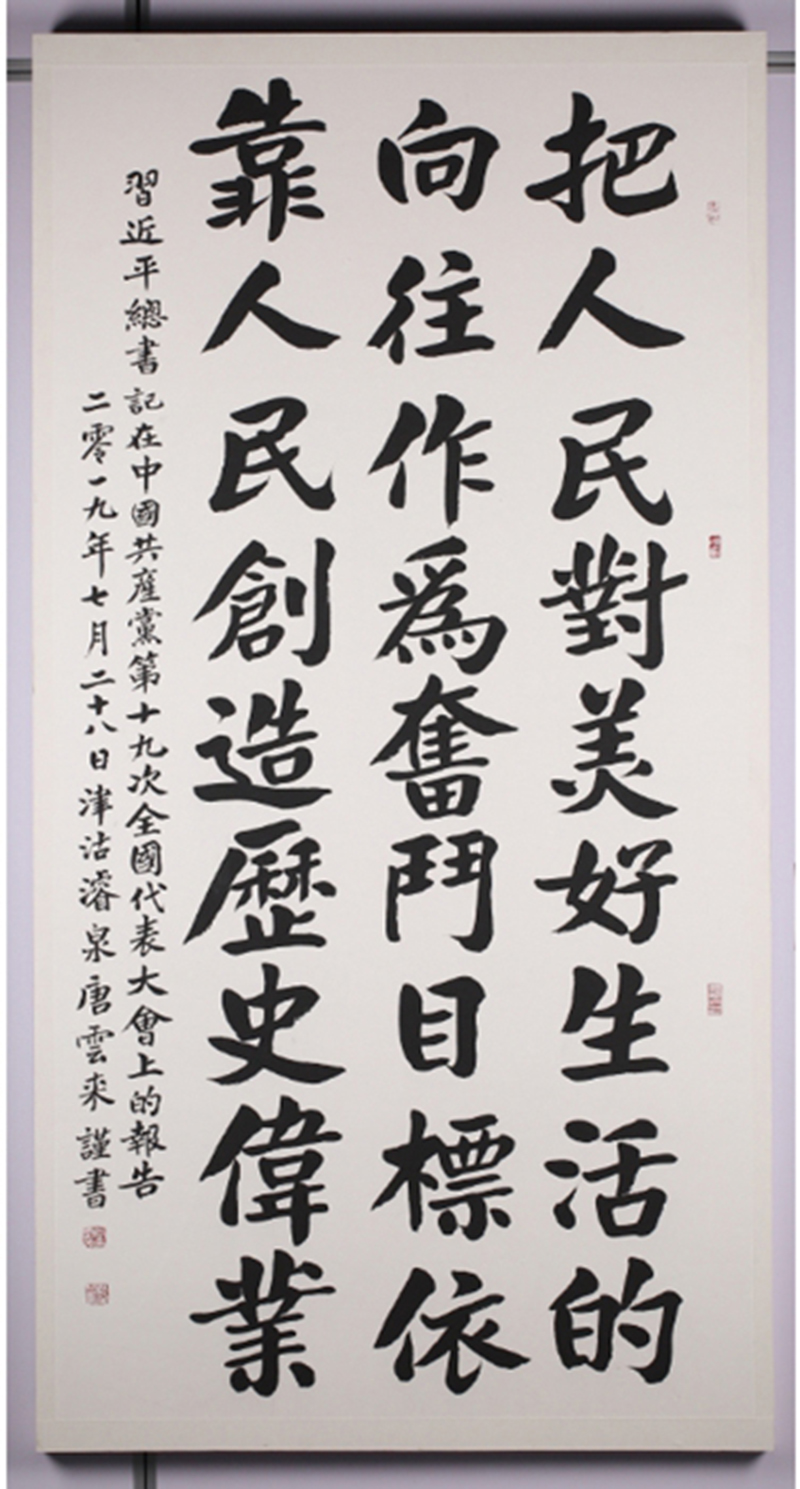 把人民對美好生活的
向往作爲奮鬥目標依
靠人民創造歷史偉業
習近平總書記在中國共產黨第十九次全國代表大會上的報告
二零一九年七月二十八日津沽濬泉唐雲来謹書